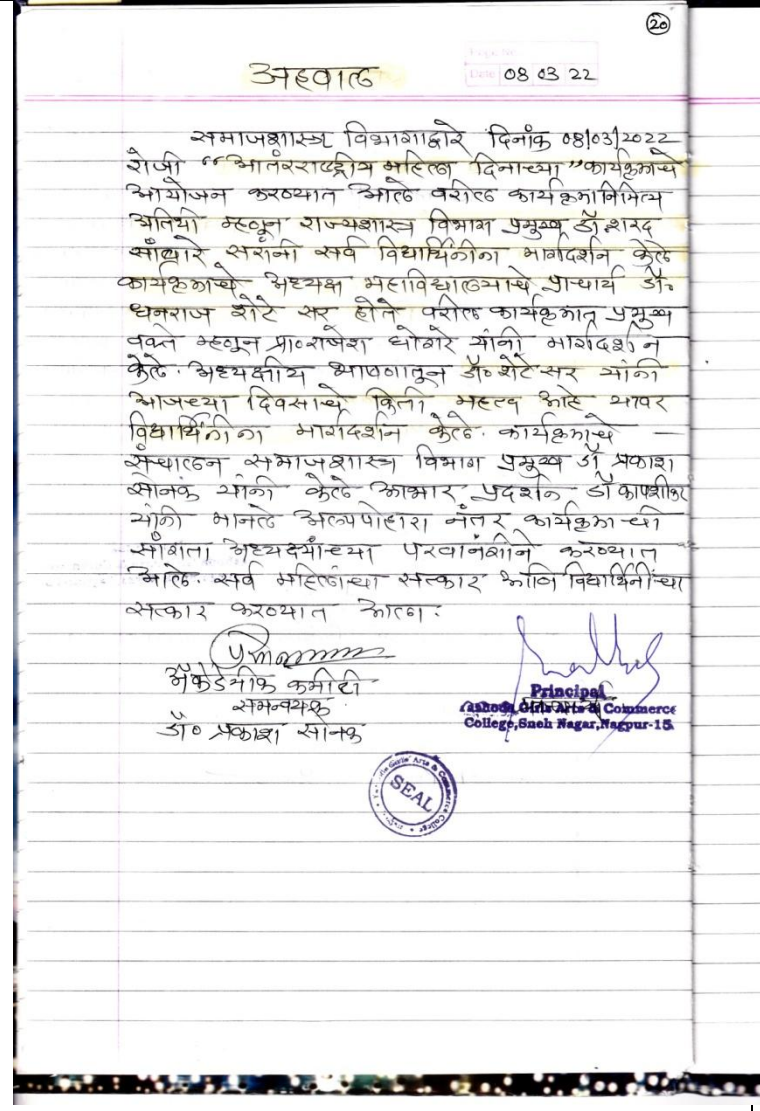 20
Page No.
Date 08 03 22
अहवाल
समाजशास्त्र विभागाद्वारे दिनांक 08/03/2022
रोजी "आतंरराष्ट्रीय महिला दिनाच्या" कार्यक्रमाचे
आयोजन करण्यात आले वरील कार्यक्रमानिमित्य
अतिथी म्हणून राज्यशास्त्र विभाग प्रमुख डॉ. शरद
सांबारे सरांनी सर्व विद्यार्थिनींना मार्गदर्शन केले
कार्यक्रमाचे अध्यक्ष महाविद्यालयाचे प्राचार्य डॉ.
धनराज शेटे सर होते वरील कार्यक्रमात प्रमुख
वक्ते म्हणून प्रा. राजेश धोंगरे यांनी मार्गदर्शन
केले. अध्यक्षीय भाषणातून डॉ. शेटे सर यांनी
आजच्या दिवसाचे किती महत्व आहे यावर
विद्यार्थिनींना मार्गदर्शन केले. कार्यक्रमाचे —
संचालन समाजशास्त्र विभाग प्रमुख डॉ प्रकाश
सोनक यांनी केले आभार प्रदर्शन डॉ कापशीकर
यांनी मानले अल्पपोहारा नंतर कार्यक्रमाची
सांगता अध्यक्ष्यांच्या परवानगीने करण्यात
आले सर्व महिलांचा सत्कार आणि विद्यार्थिनींचा
सत्कार करण्यात आला.
अ‍ॅकेडेमीक कमीटी
समन्वयक
डॉ. प्रकाश सोनक
Principal
Yashoda Girls Arts & Commerce
College, Sneh Nagar, Nagpur-15.
SEAL